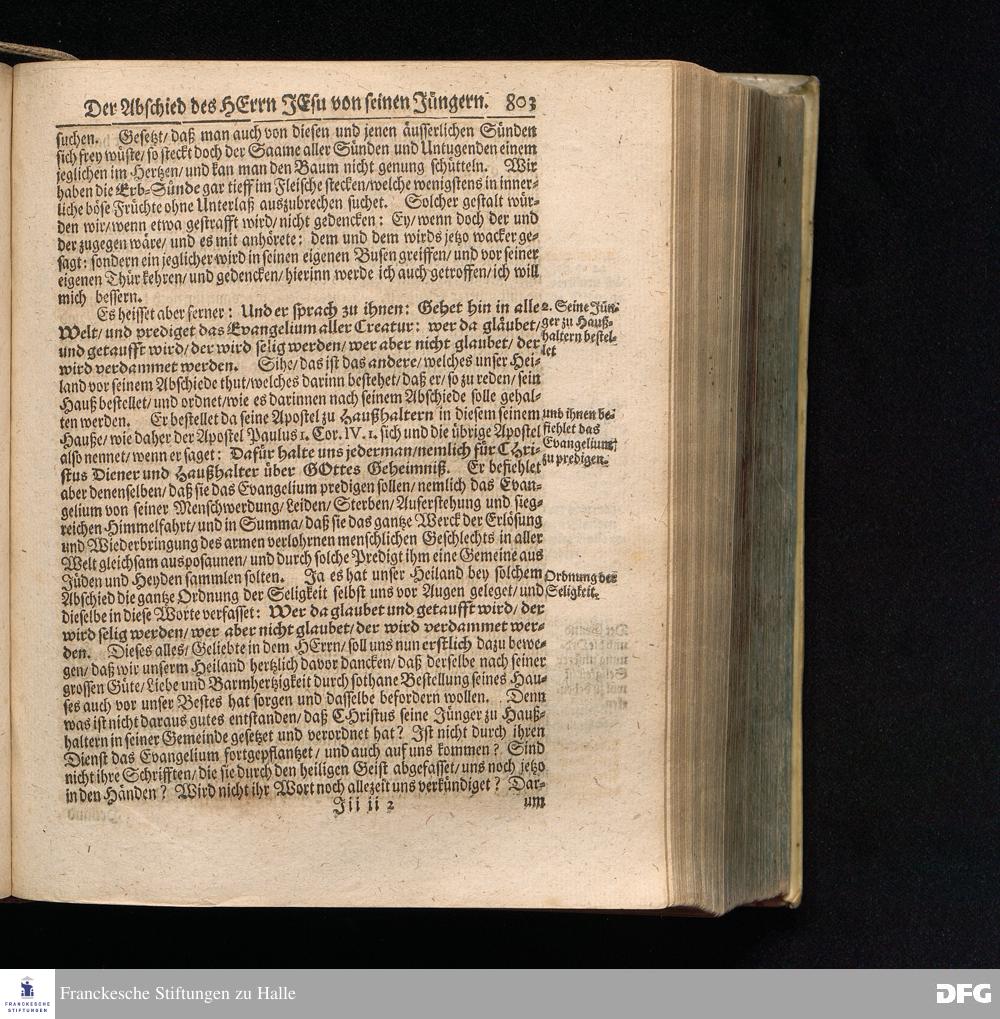 Der Abschied des HErrn JEsu von seinen Jüngern. 803
suchen. Gesetzt/ daß man auch von diesen und jenen äusserlichen Sünden
sich frey wüste/ so steckt doch der Saame aller Sünden und Untugenden einem
jeglichen im Hertzen/ und kan man den Baum nicht genung schütteln. Wir
haben die Erb-Sünde gar tieff im Fleische stecken/ welche wenigstens in inner-
liche böse Früchte ohne Unterlaß auszubrechen suchet. Solcher gestalt wür-
den wir/ wenn etwa gestrafft wird/ nicht gedencken: Ey/ wenn doch der und
der zugegen wäre/ und es mit anhörete: dem und dem wirds jetzo wacker ge-
sagt: sondern ein jeglicher wird in seinen eigenen Busen greiffen/ und vor seiner
eigenen Thür kehren/ und gedencken/ hierinn werde ich auch getroffen/ ich will
mich bessern.
Es heisset aber ferner: Und er sprach zu ihnen: Gehet hin in alle
Welt/ und prediget das Evangelium aller Creatur: wer da gläubet/
und getaufft wird/ der wird selig werden/ wer aber nicht glaubet/ der
wird verdammet werden. Sihe/ das ist das andere/ welches unser Hei-
land vor seinem Abschiede thut/ welches darinn bestehet/ daß er/ so zu reden/ sein
Hauß bestellet/ und ordnet/ wie es darinnen nach seinem Abschiede solle gehal-
ten werden. Er bestellet da seine Apostel zu Haußhaltern in diesem seinem
Hause/ wie daher der Apostel Paulus 1. Cor. IV. 1. sich und die übrige Apostel
also nennet/ wenn er saget: Dafür halte uns jederman/ nemlich für CHri-
stus Diener und Haußhalter über GOttes Geheimniß. Er befiehlet
aber denenselben/ daß sie das Evangelium predigen sollen/ nemlich das Evan-
gelium von seiner Menschwerdung/ Leiden/ Sterben/ Auferstehung und sieg-
reichen Himmelfahrt/ und in Summa/ daß sie das gantze Werck der Erlösung
und Wiederbringung des armen verlohrnen menschlichen Geschlechts in aller
Welt gleichsam ausposaunen/ und durch solche Predigt ihm eine Gemeine aus
Jüden und Heyden sammlen solten. Ja es hat unser Heiland bey solchem
Abschied die gantze Ordnung der Seligkeit selbst uns vor Augen geleget/ und
dieselbe in diese Worte verfasset: Wer da glaubet und getaufft wird/ der
wird selig werden/ wer aber nicht glaubet/ der wird verdammet wer-
den. Dieses alles/ Geliebte in dem HErrn/ soll uns nun erstlich dazu bewe-
gen/ daß wir unserm Heiland hertzlich davor dancken/ daß derselbe nach seiner
grossen Güte/ Liebe und Barmhertzigkeit durch sothane Bestellung seines Hau-
ses auch vor unser Bestes hat sorgen und dasselbe befordern wollen. Denn
was ist nicht daraus gutes entstanden/ daß CHristus seine Jünger zu Hauß-
haltern in seiner Gemeinde gesetzet und verordnet hat? Ist nicht durch ihren
Dienst das Evangelium fortgepflantzet/ und auch auf uns kommen? Sind
nicht ihre Schrifften/ die sie durch den heiligen Geist abgefasset/ uns noch jetzo
in den Händen? Wird nicht ihr Wort noch allezeit uns verkündiget? Dar-
Jii ii 2 um
2. Seine Jün-
ger zu Hauß-
haltern bestel-
let
und ihnen be-
fiehlet das
Evangelium
zu predigen.
Ordnung der
Seligkeit.
FRANCKESCHE
STIFTUNGEN
Franckesche Stiftungen zu Halle
DFG